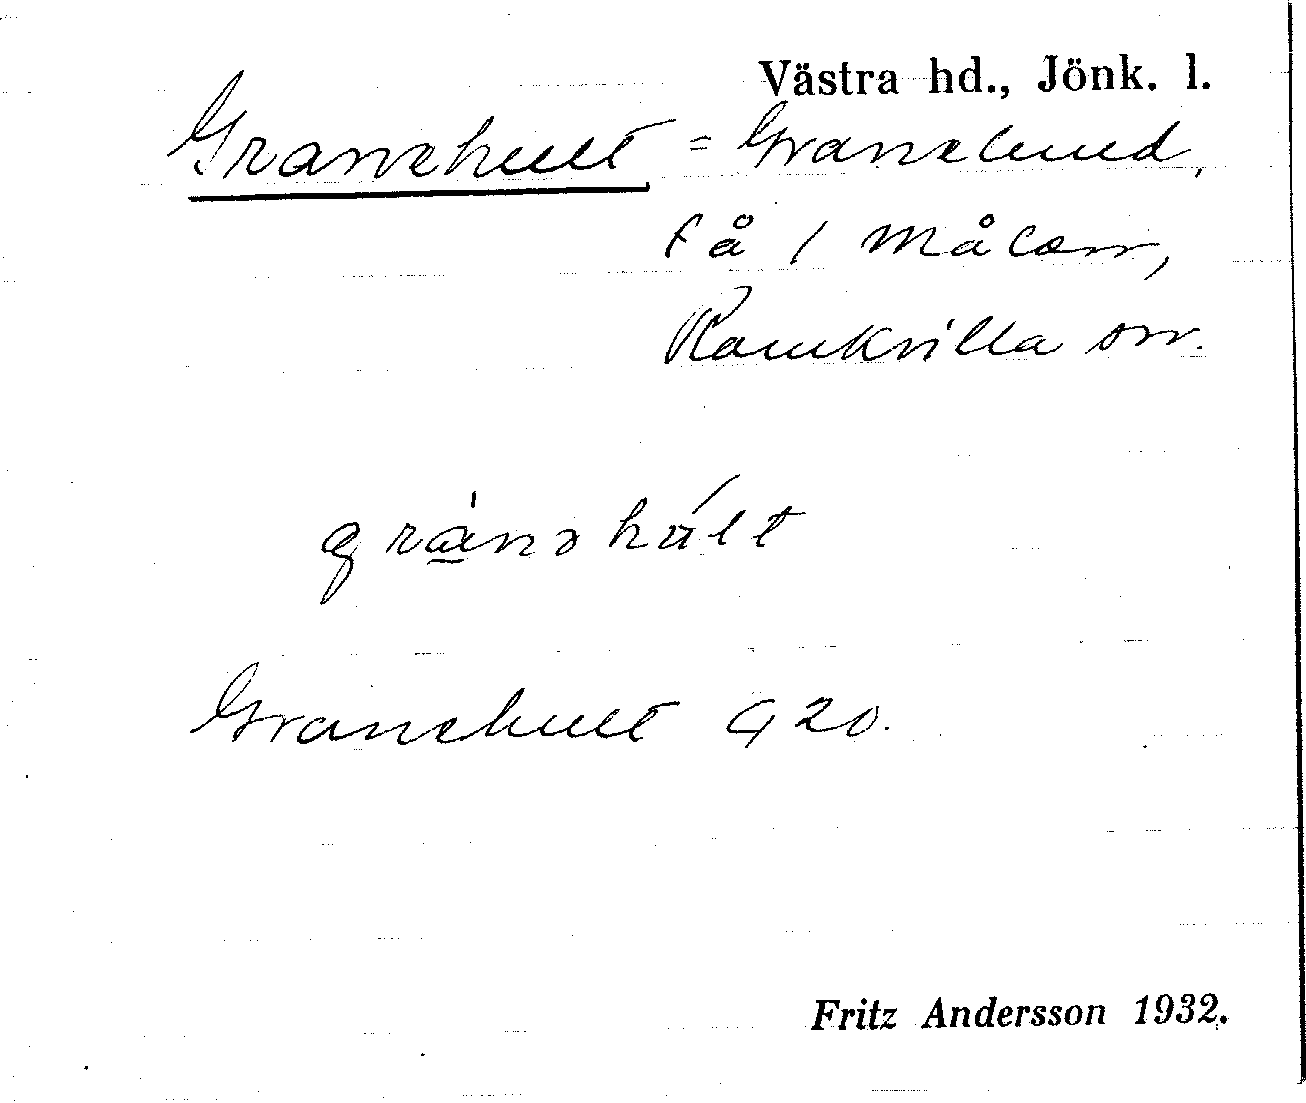 Västra hd., Jönk. l.
Granehult = Granelund,
få / Målen,
Ramkvilla sn.
grànəhúlt
Granehult G 20.
Fritz Andersson 1932.